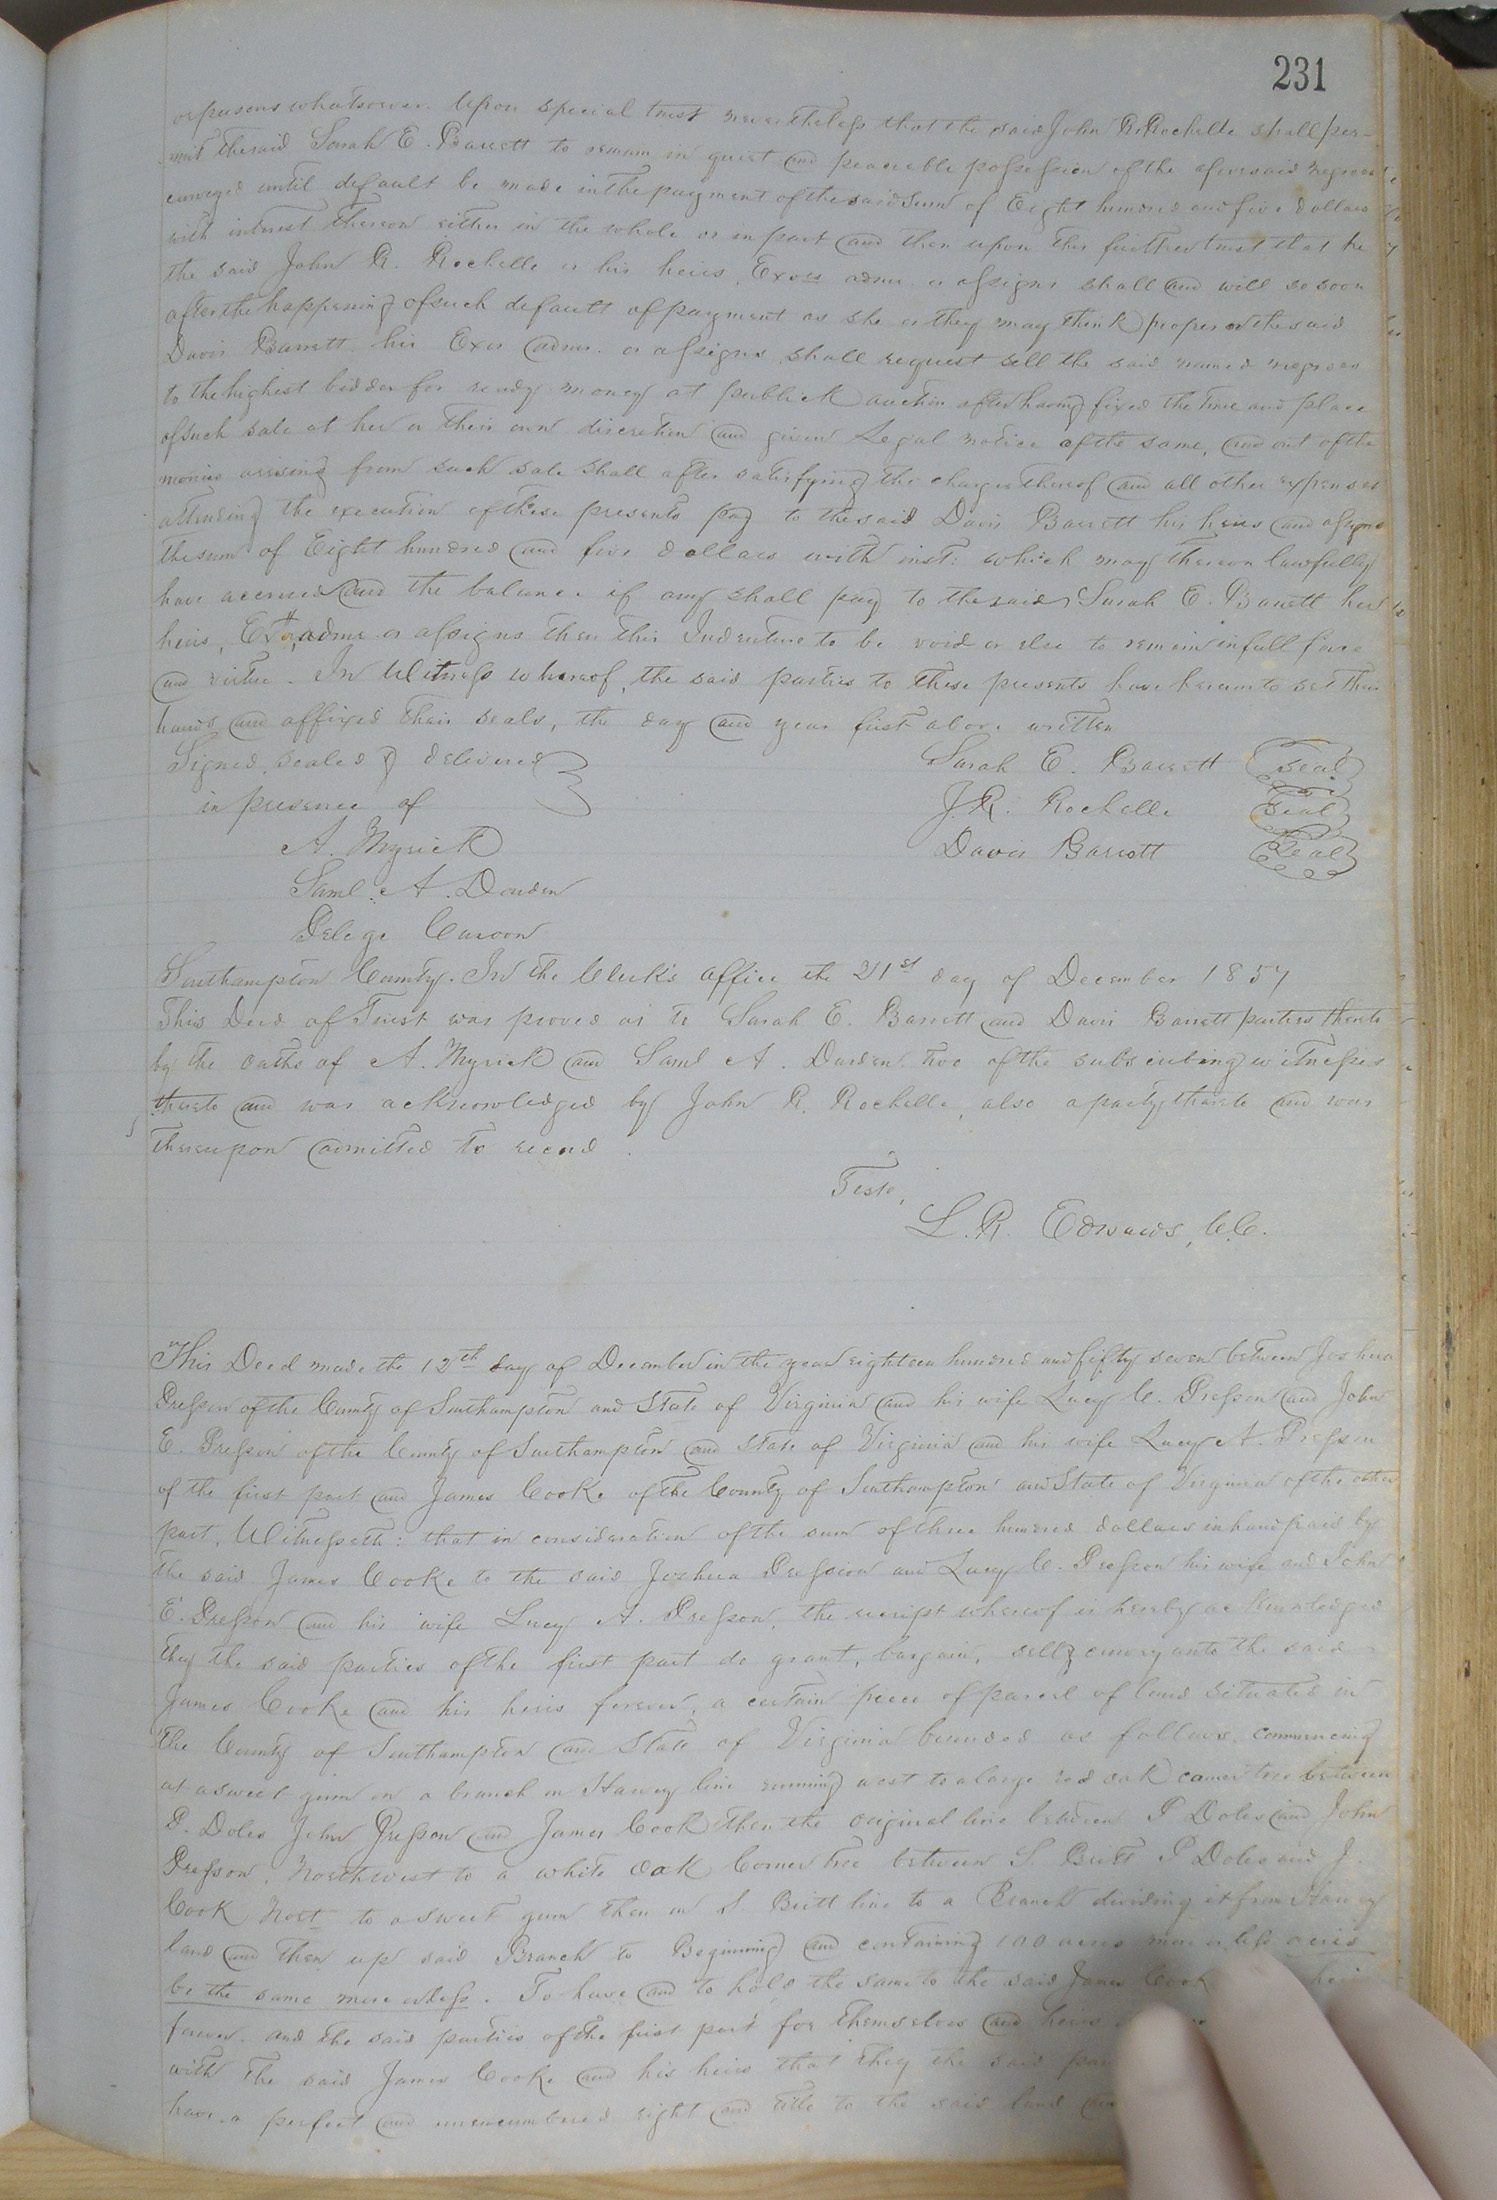 231
or persons whatsoever. Upon special trust nevertheless that the said John R. Rochelle shall per-
mit the said Sarah E. Barrett to remain in quiet and peaceble possession of the aforesaid negroes
conveyed until default be made in the payment of the said sum of Eight hundred and five dollars
with interest thereon either in the whole or in part and then upon this further trust that he
the said John R. Rochelle or his heirs, Exors admr. or assigns shall and will so soon
after the happening of such default of payment as she or they may think proper or the said
Davis Barrett his Exor admr. or assigns shall request sell the said named negroes
to the highest bidder for ready money at publick auction after having fixed the time and place
of such sale at her or their own discretion and given Legal notice of the same, and out of the
monies arising from such sale shall after satisfying the charges thereof and all other expenses
attending the execution of these presents pay to the said Davis Barrett his heirs and assigns
the sum of Eight hundred and five dollars with inst: which may thereon lawfully
have accrued and the balance if any shall pay to the said Sarah E. Barrett her
heirs, Exors, admr or assigns then this Indenture to be void or else to remain in full force
and virtue. In Witness whereof, the said parties to these presents have hereunto set their
hands and affixed their seals, the day and year first above written
Signed, sealed & delivered Sarah E. Barrett Seal
in presence of J. R. Rochelle Seal
A. Myrick Davis Barrett Seal
Saml. A. Darden
Pelege Carson
Southampton County. In the Clerk's office the 21st day of December 1857
This Deed of Trust was proved as to Sarah E. Barrett and Davis Barrett parties thereto
by the oaths of A. Myrick and Saml A. Darden two of the subscribing witnesses
thereto and was acknowledged by John R. Rochelle, also a party thereto and was
thereupon admitted to record.
Teste,
L. R. Edwards, C.C.
This Deed made the 12th day of December in the year eighteen hundred and fifty seven between Joshua
Presson of the County of Southampton and State of Virginia and his wife Lucy C. Presson and John
E. Presson of the County of Southampton and State of Virginia and his wife Lucy A. Presson
of the first part and James Cooke of the County of Southampton and State of Virginia of the other
part, Witnesseth: that in consideration of the sum of three hundred dollars in hand paid by
the said James Cooke to the said Joshua Pression and Lucy C. Presson his wife and John
E. Presson and his wife Lucy A. Presson, the receipt whereof is hereby acknowledged
they the said parties of the first part do grant, bargain, sell & convey unto the said
James Cooke and his heirs forever, a certain piece of parcel of land situated in
the County of Southampton and State of Virginia bounded as follows. commencing
at a sweet gum in a branch on line running west to a large red oak corner tree between
P. Doles John Presson and James Cook then the original line between P Doles and John
Presson, Northwest to a white oak Corner tree between S. Britt P Doles and J.
Cook Nort to a sweet gum then on S. Britt line to a Branch dividing it from
land and then up said Branch to Beginning and containing 100 acres more or less acres
be the same more or less. To have and to hold the same to the said James Cook heirs
forever. and the said parties of the first part for themselves and heirs
with the said James Cooke and his heirs that they the said par
have a perfect and unencumbered right and title to the said land and